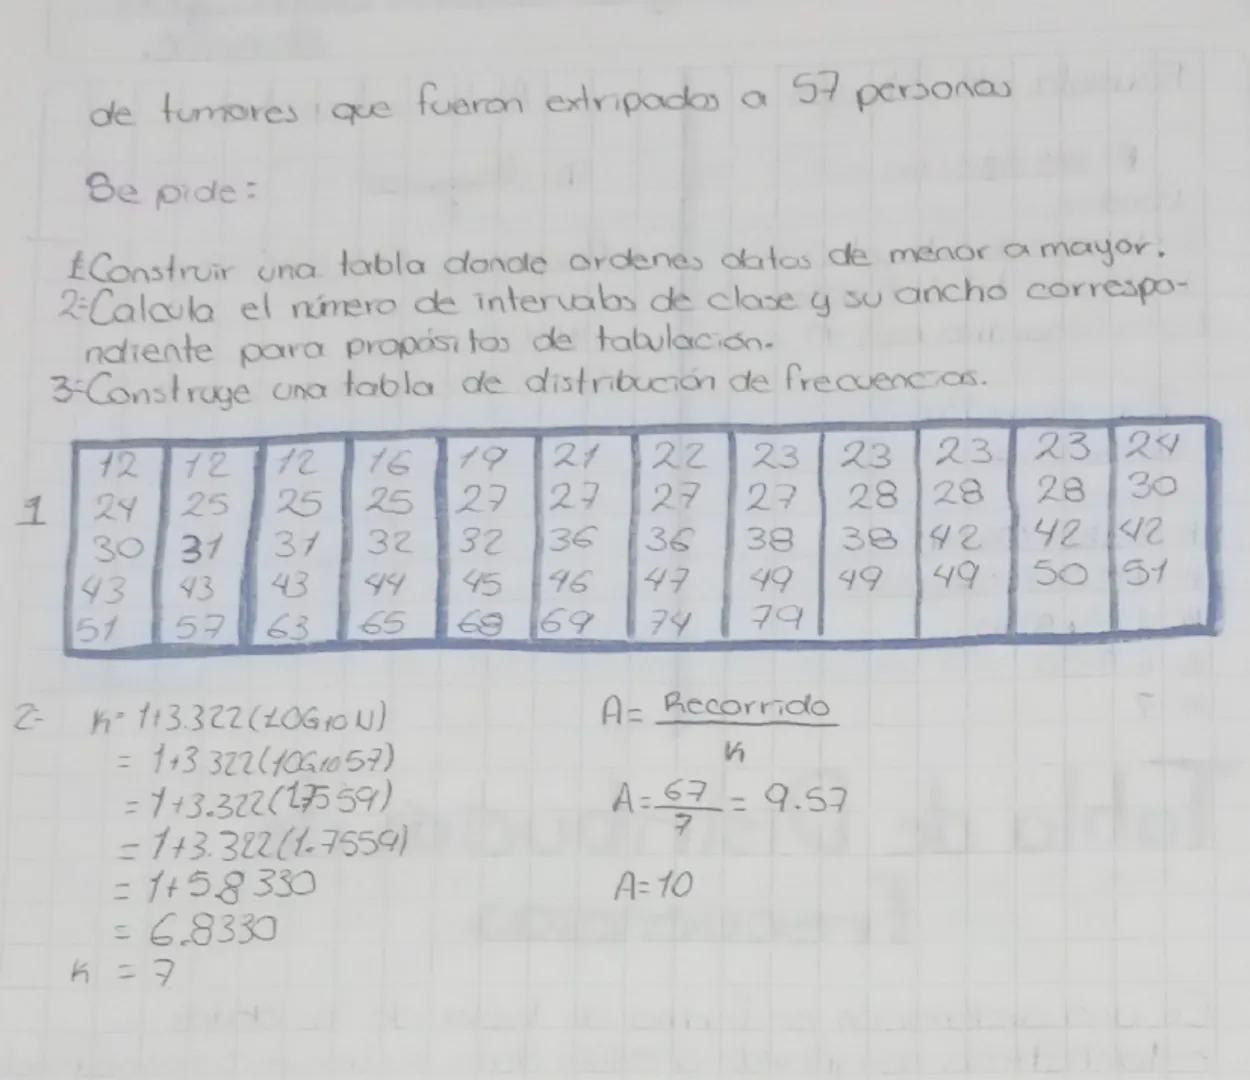 de tumores que fueron extripados a 57 personas
Se pide:
1-Construir una tabla donde ordenes datos de menor a mayor.
2-Calcula el número de intervalos de clase y su ancho correspo-
ndiente para propósitos de tabulación.
3-Construye una tabla de distribución de frecuencias.
12 12 12 16 19 21 22 23 23 23 23 24
1 24 25 25 25 27 27 27 27 28 28 28 30
30 31 31 32 32 36 36 38 38 42 42 42
43 43 43 44 45 46 47 49 49 49 50 51
51 57 63 65 68 69 74 79
2- K= 1+3.322(LOG10 N)
= 1+3.322(LOG10 57)
= 1+3.322(1.7559)
= 1+3.322(1.7559)
= 1+5.8330
= 6.8330
K = 7
A= Recorrido
K
A= 67 = 9.57
7
A=10